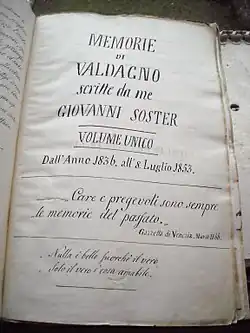 MEMORIE
DI
VALDAGNO
scritte da me
GIOVANNI SOSTER
VOLUME UNICO
Dall'Anno 1836, all' 8 Luglio 1853.
Care e pregevoli sono sempre
le memorie del passato.
Gazzetta di Venezia,
Nulla è bello fuorchè il vero
Solo il vero è cosa amabile.